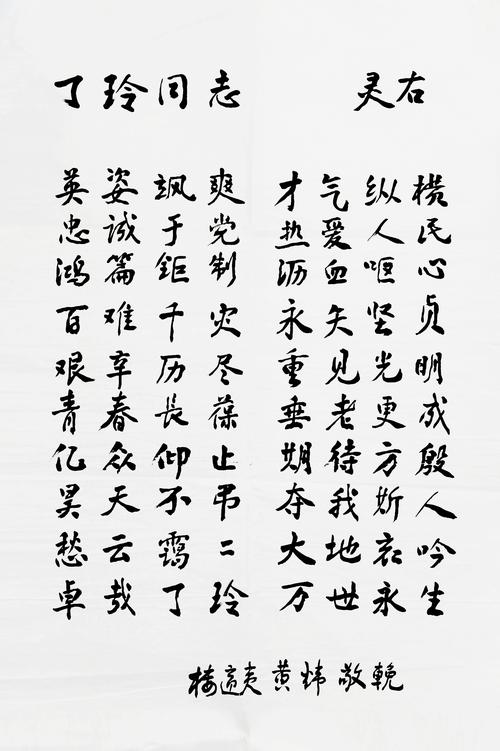 丁玲同志 灵右
英姿飒爽 才气纵横
忠诚于党 热爱人民
鸿篇钜制 沥血呕心
百难千灾 永矢坚贞
艰辛历尽 重见光明
青春长葆 垂老更成
亿众仰止 期待方殷
昊天不弔 夺我斯人
愁云霭〻 大地哀吟
卓哉丁玲 万世永生
楼適夷 黄炜 敬輓